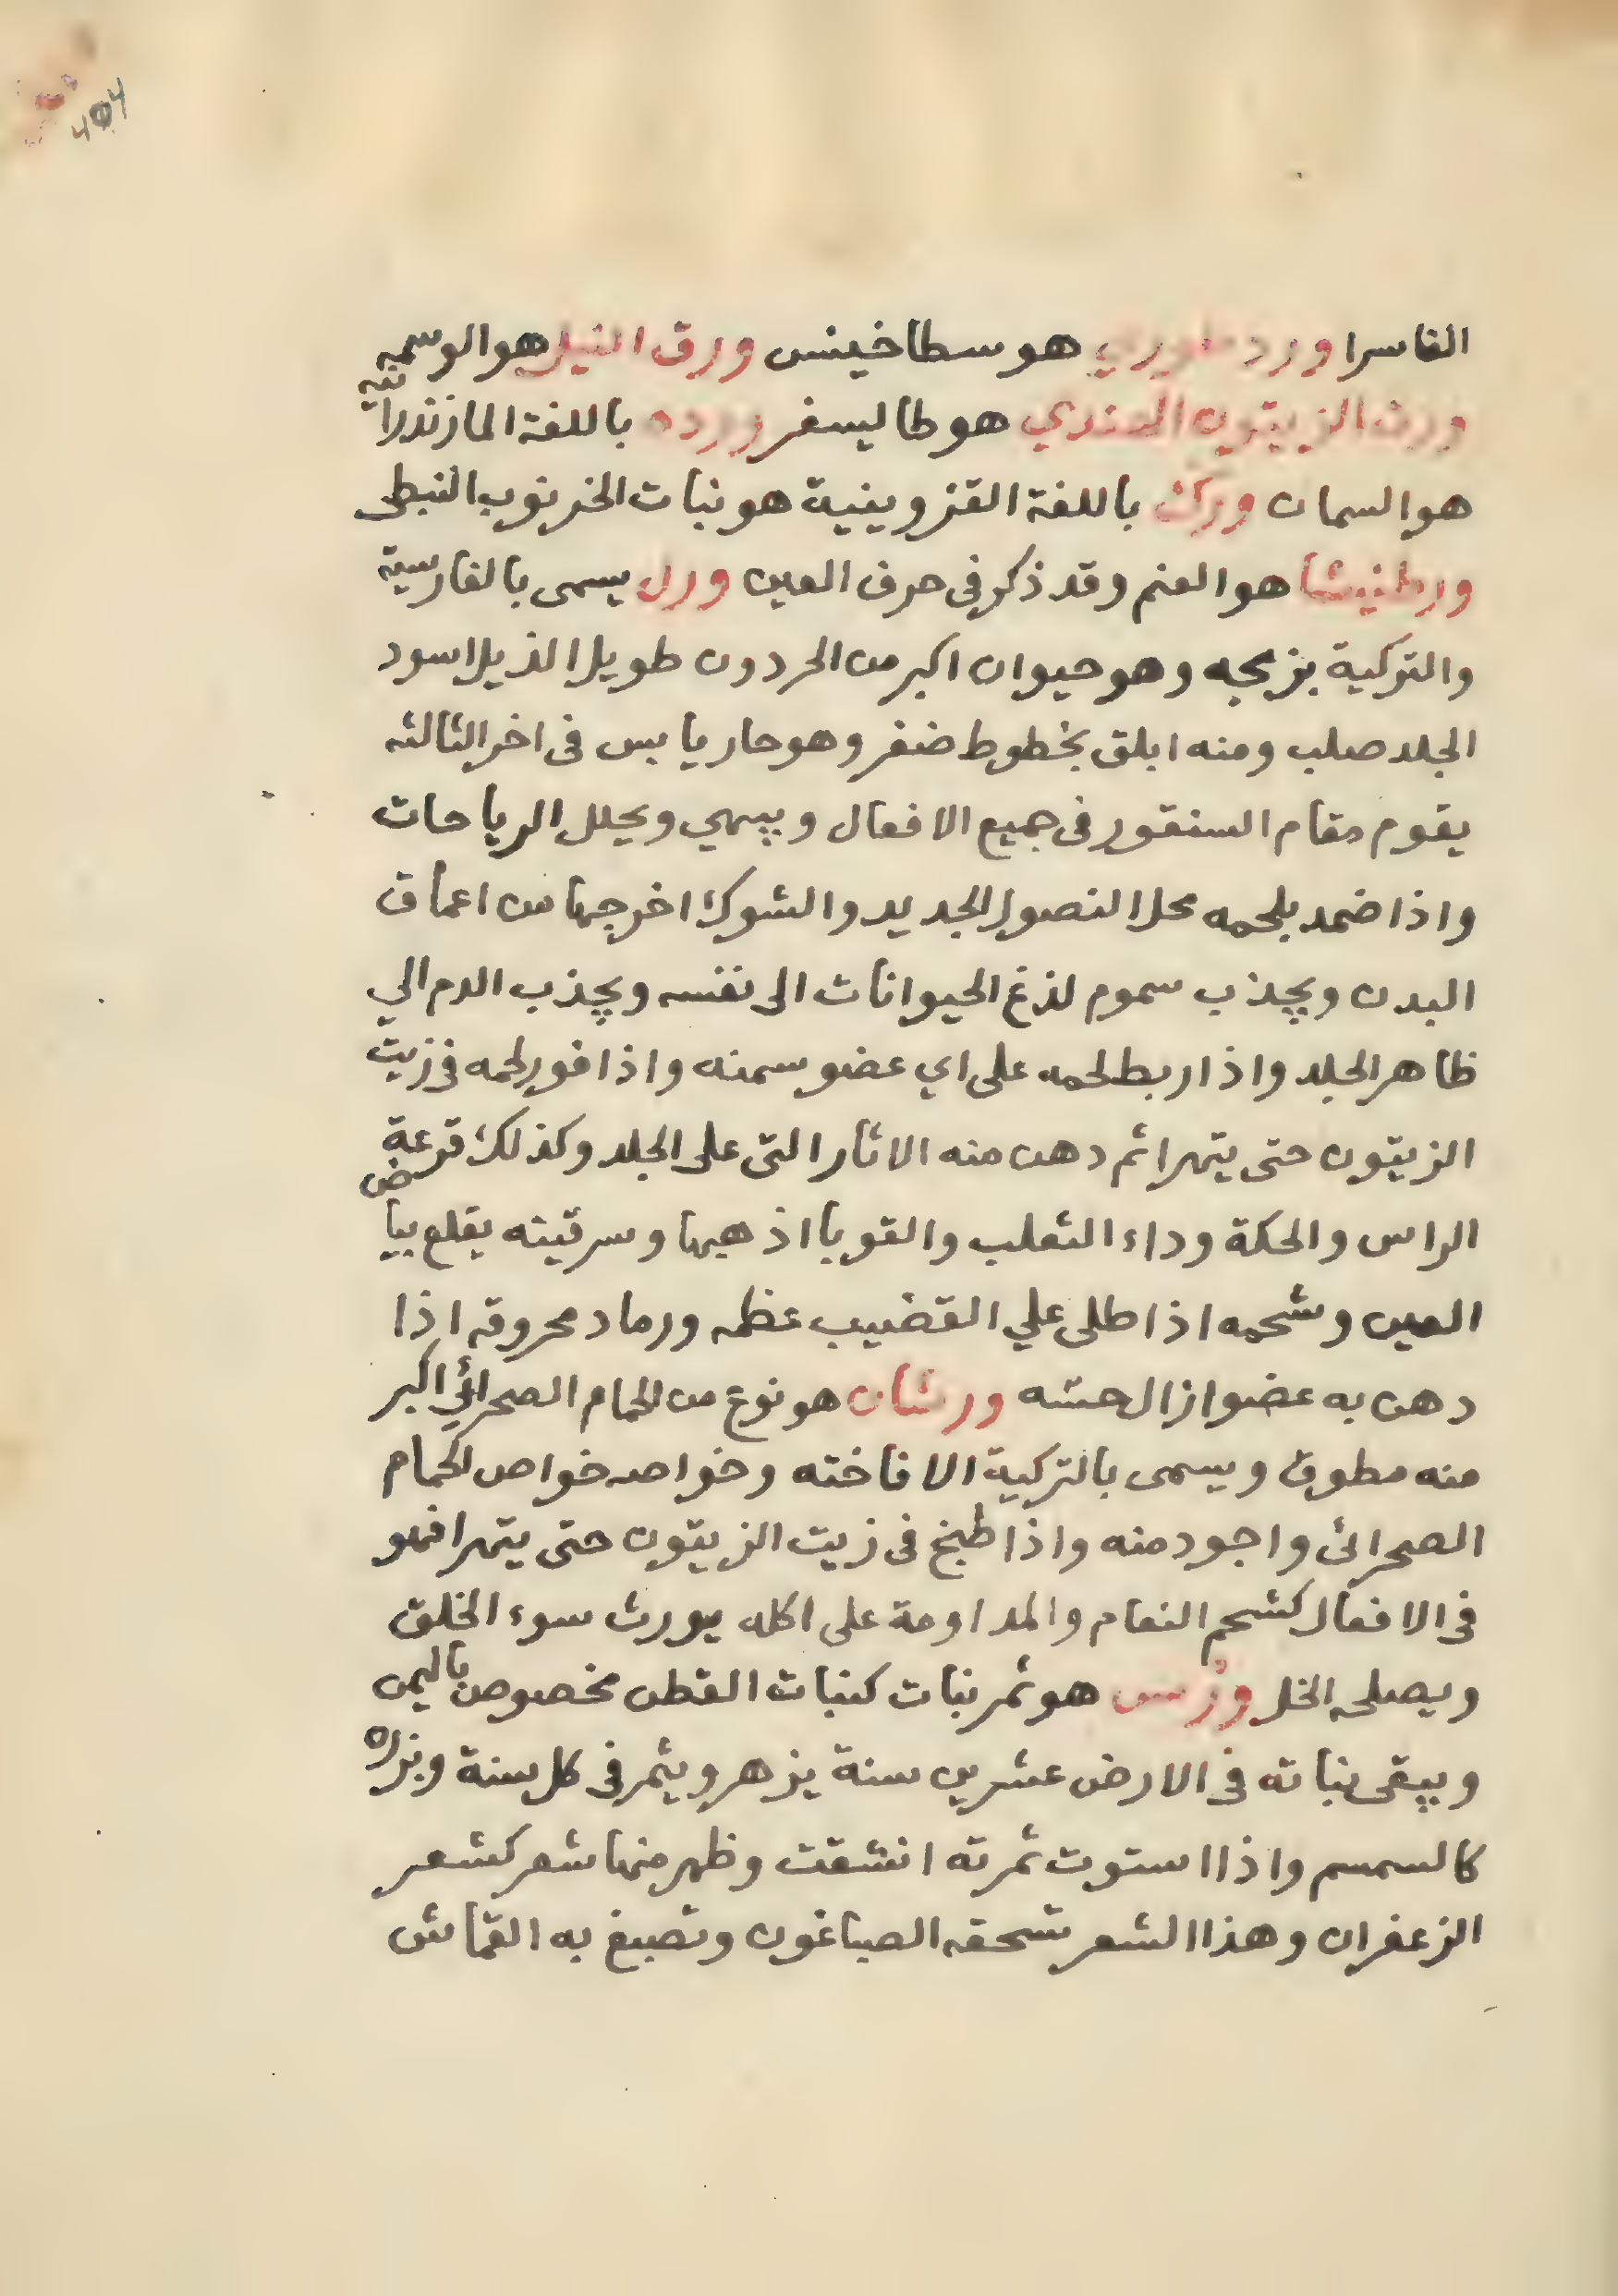 الفاسرا ورد طوري هو سطاخينس ورق النيل هو الوسمه
ورق الزيتون الهندي هو طاليسفر ورده باللغة المازندرانيه
هو السمان ورك باللغة القزوينية هو نبات الخرنوب النبطى
ورطنيشا هو العنم وقد ذكر فى حرف العين ورل يسمى بالفارسية
والتركية بزمجه وهو حيوان اكبر من الحردون طويل الذيل اسود
الجلد صلب ومنه ابلق بخطوط ضفر وهو حار يابس فى اخر الثالثه
يقوم مقام السنقور فى جميع الافعال ويبهي ويحلل الرياحات
واذا ضمد بلحمه محل النصول الجديد والشوك اخرجها من اعماق
البدن ويجذب سموم لذغ الحيوانات الى نفسه ويجذب الدم الي
ظاهر الجلد واذا ربط لحمه على اي عضو سمنه واذا فور لحمه فى زيت
الزيتون حتى يتهرا ثم دهن منه الاثار التى على الجلد وكذلك قرعة
الراس والحكة وداء الثعلب والقوبا اذهبها وسرقينه يقلع بياض
العين وشحمه اذا طلى علي القضيب عظمه ورماد محروقه اذا
دهن به عضوا زال حسه ورشان هو نوع من الحمام الصحرائي اكبر
منه مطوق ويسمى بالتركية الا فاخته وخواصه خواص الحمام
الصحرائى واجود منه واذا طبخ فى زيت الزيتون حتى يتهرا فهو
فى الافعال كشحم النعام والمداومة على اكله يورث سوء الخلق
ويصلحه الخل ورس هو ثمر نبات كنبات القطن مخصوص باليمن
ويبقى نباته فى الارض عشرين سنة يزهر ويثمر فى كل سنة وبزره
كالسمسم واذا استوت ثمرته انشقت وظهر منها شعر كشعر
الزعفران وهذا الشعر تسحقه الصباغون وتصبغ به القماش